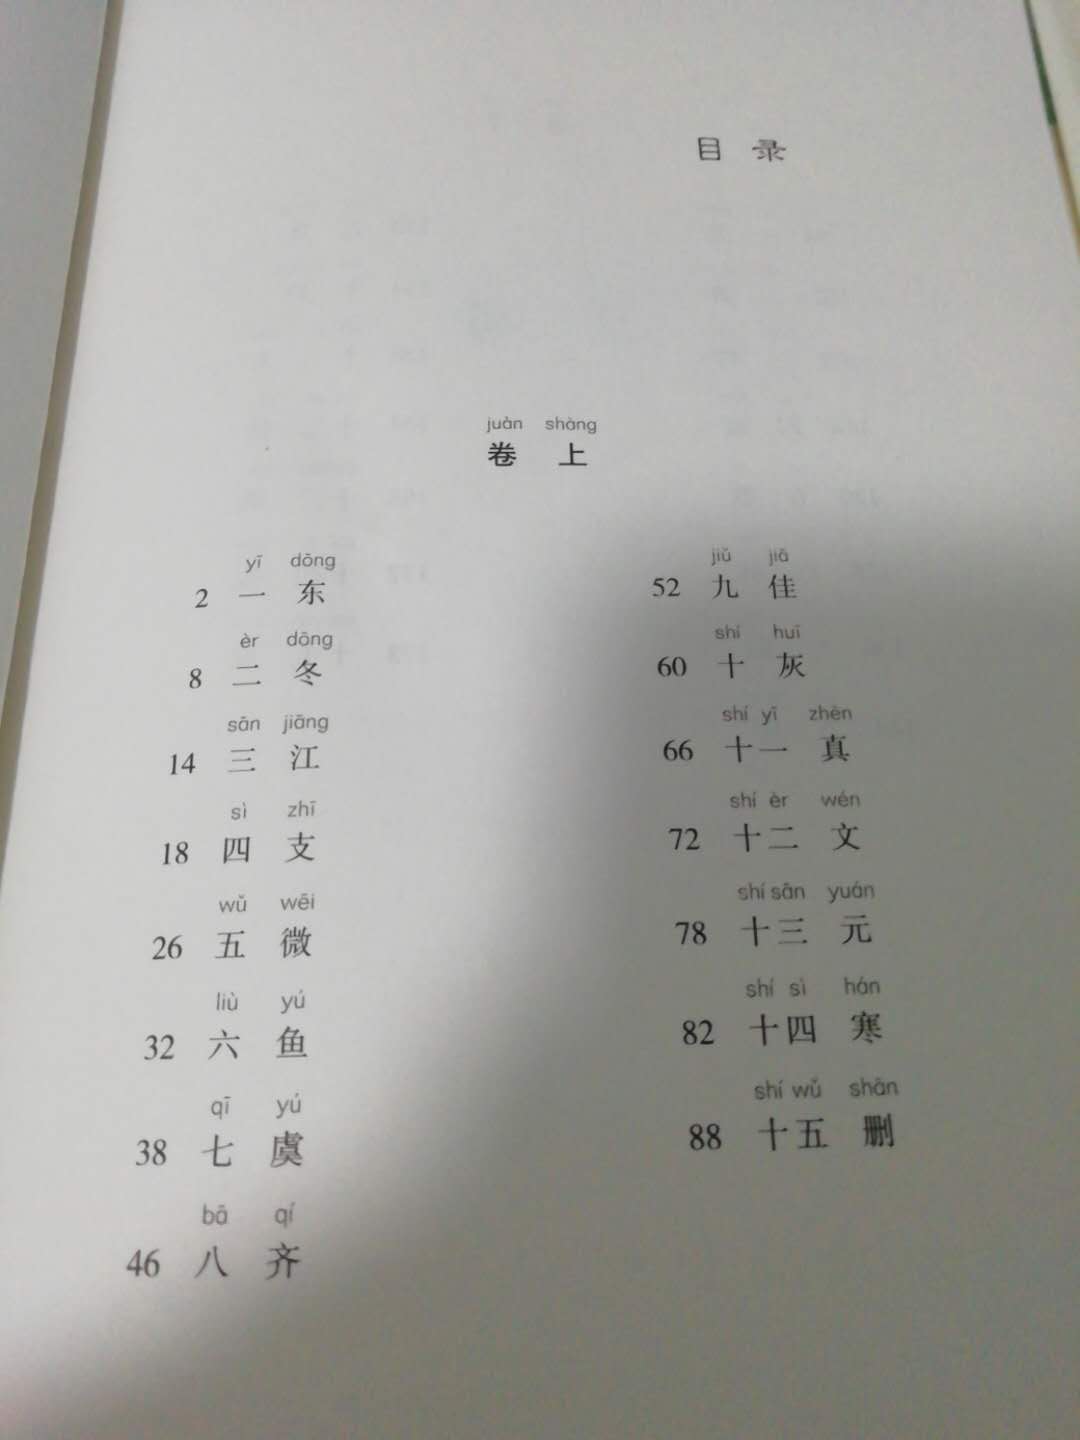 目 录
juàn shàng
卷 上
yī dōng
2 一 东
èr dōng
8 二 冬
sān jiāng
14 三 江
sì zhī
18 四 支
wǔ wēi
26 五 微
liù yú
32 六 鱼
qī yú
38 七 虞
bā qí
46 八 齐
jiǔ jiā
52 九 佳
shí huī
60 十 灰
shí yī zhēn
66 十一 真
shí èr wén
72 十二 文
shí sān yuán
78 十三 元
shí sì hán
82 十四 寒
shí wǔ shān
88 十五 删